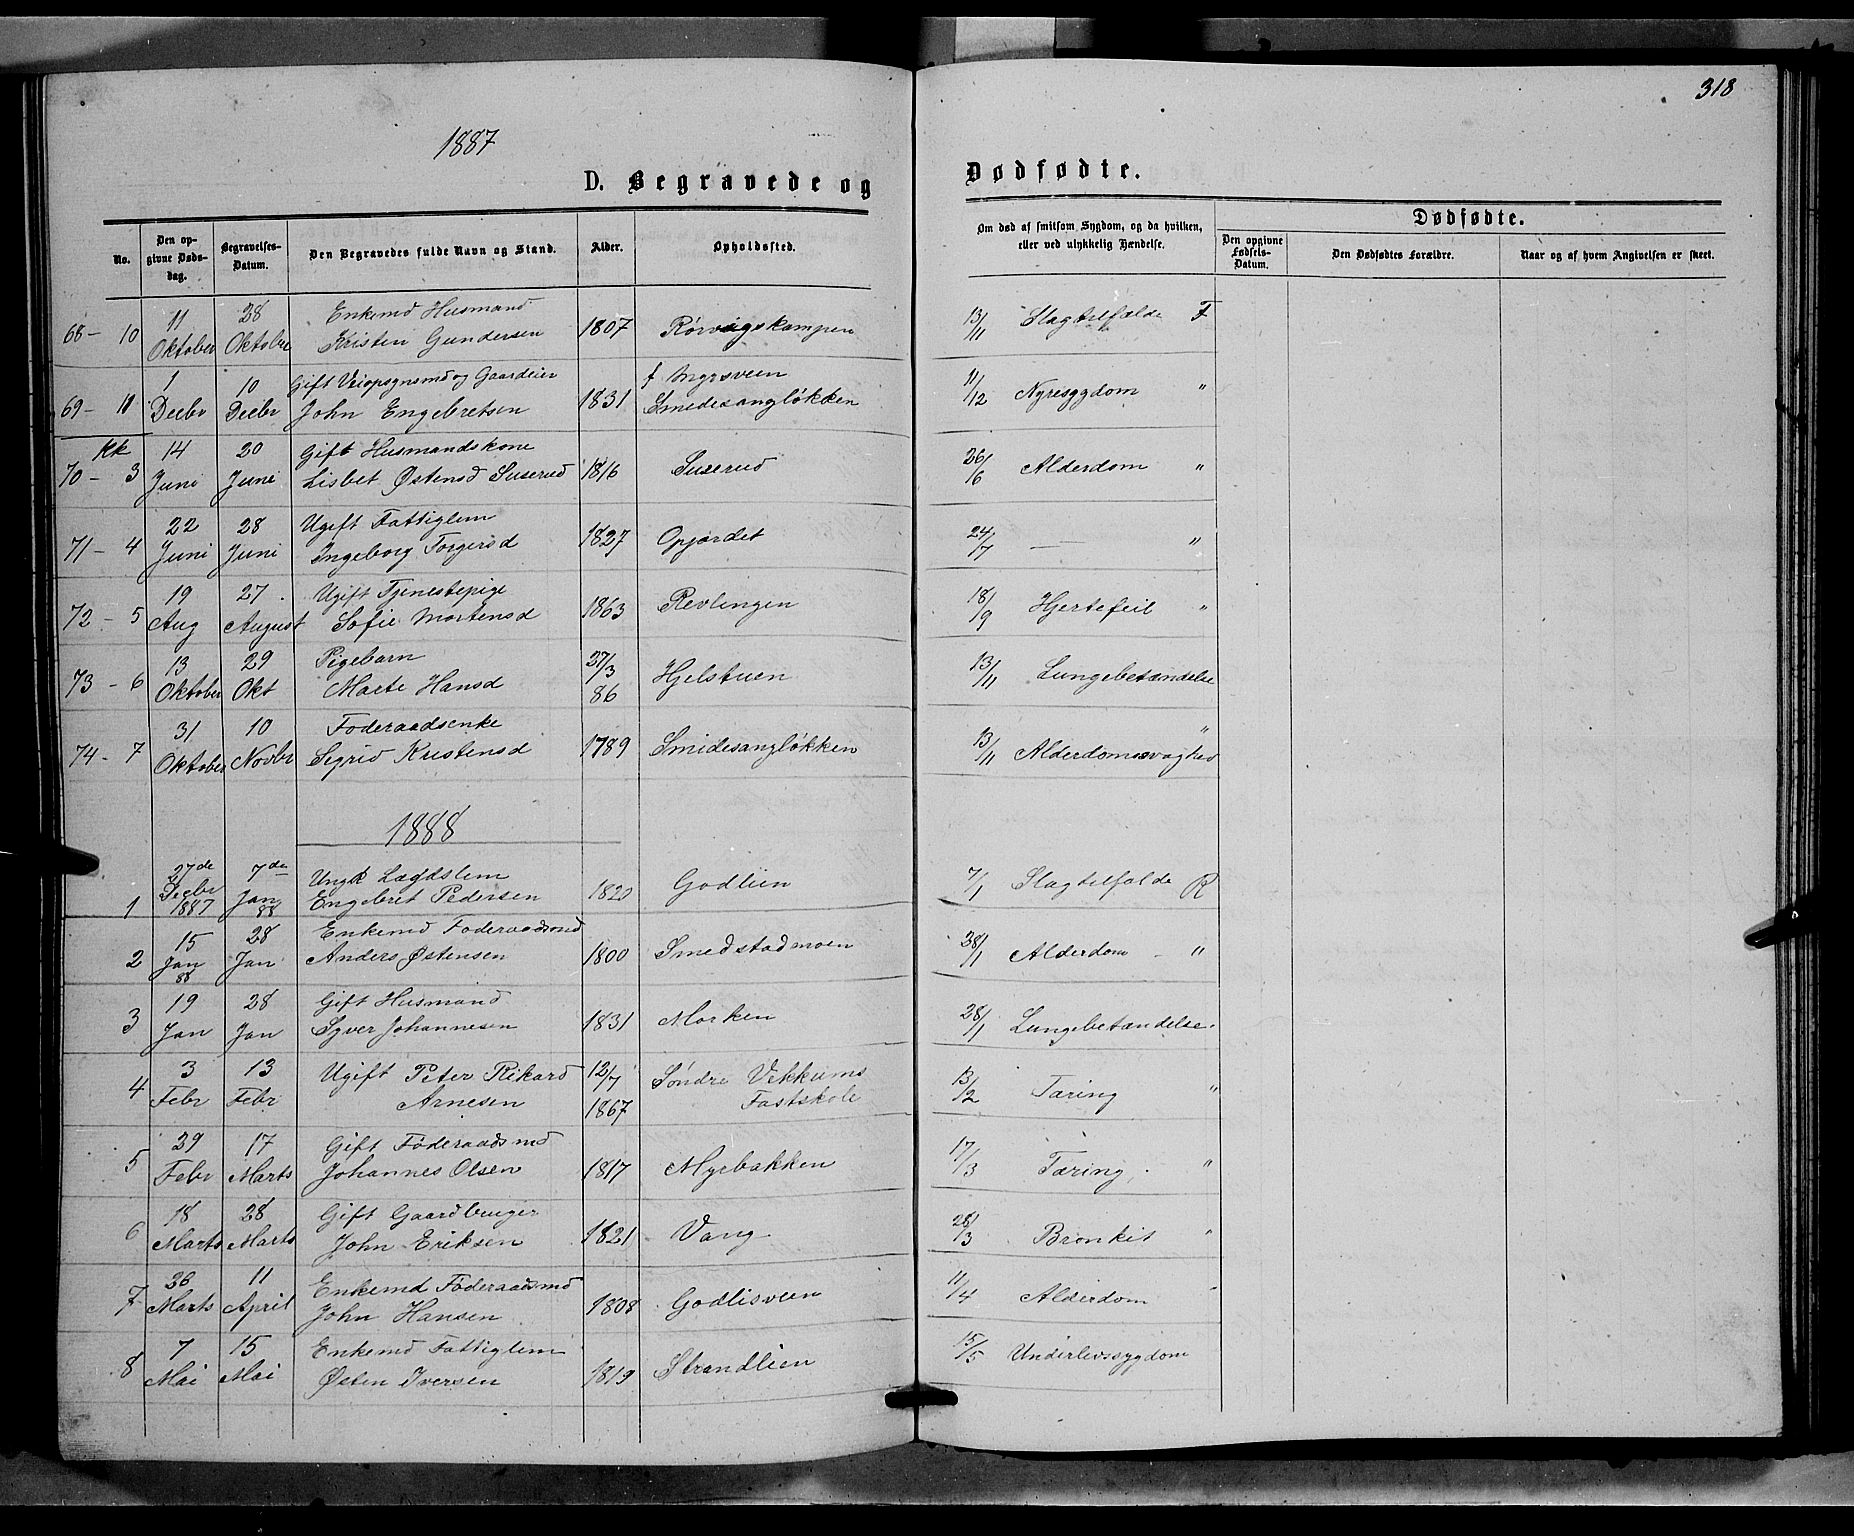 318
1887
D. Begravede og Dødfødte.
No.
Den opgivne Dødsdag.
Begravelses-Datum.
Den Begravedes fulde Navn og Stand.
Alder.
Opholdssted.
Om død af smitsom Sygdom, og da hvilken, eller ved ulykkelig Hændelse.
Dødfødte.
Den opgivne Fødsels-Datum.
Den Dødfødtes Forældre.
Naar og af hvem Angivelsen er skeet.
68 - 10 11 Oktober 28 Oktober Enkemd Husmand Kristen Gundersen 1807 Rørvigskampen 13/11 Slagtilfælde F
69 - 11 1 Decbr 10 Decbr Gift Veiopsynsmd og Gaardeier John Engebretsen 1831 f Myrsveen Smidesangløkken 11/12 Nyresygdom "
Kk
70 - 3 14 Juni 20 Juni Gift Husmandskone Lisbet Østensd Suserud 1816 Suserud 26/6 Alderdom "
71 - 4 22 Juni 28 Juni Ugift Fattiglem Ingeborg Torgersd 1827 Opjordet 24/7 — "
72 - 5 19 Aug 27 August Ugift Tjenestepige Sofie Mortensd 1863 Revlingen 18/9 Hjertefeil "
73 - 6 13 Oktober 29 Okt Pigebarn Marte Hansd 27/3 86 Hjelstuen 13/11 Lungebetændelse
74 - 7 31 Oktober 10 Novbr Føderaadsenke Sigrid Kristensd 1789 Smidesangløkken 13/11 Alderdomssvaghed "
1888
1 27de Decbr 1887 7de Jan 88 Ungk Lægdslem Engebret Pedersen 1820 Godlien 7/1 Slagtilfælde R
2 15 Jan 88 28 Jan Enkemd Føderaadsmd Anders Østensen 1800 Smedstadmoen 28/1 Alderdom - "
3 19 Jan 28 Jan Gift Husmand Syver Johannesen 1831 Morken 28/1 Lungebetændelse.
4 3 Febr 13 Febr Ugift Peter Rikard Arnesen 12/7 1867 Søndre Vekkums Fastskole 13/2 Tæring "
5 29 Febr 17 Marts Gift Føderaadsmd Johannes Olsen 1817 Myrbakken 17/3 Tæring, "
6 18 Marts 28 Marts Gift Gaardbruger John Eriksen 1821 Vang 28/3 Bronkit "
7 26 Marts 11 April Enkemd Føderaadsmd John Hansen 1808 Godlisveen 11/4 Alderdom "
8 7 Mai 15 Mai Enkemd Fattiglem Østen Iversen 1819 Strandlien 15/5 Underlivssygdom